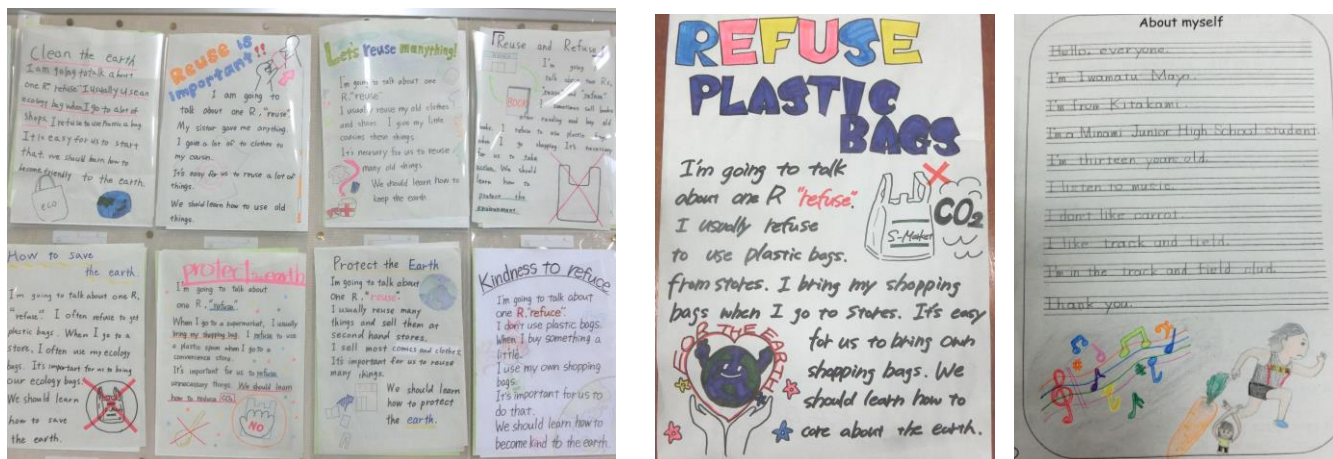 Clean the earth
I am going to talk about
one R "refuse" I usually use an
ecology bag when I go to a lot of
shops. I refuse to use plastic a bag
It is easy for us to start
that. we should learn how to
become friendly to the earth.
ECO
Reuse is
important!!
I am going to
talk about one R, "reuse".
My sister gave me anything.
I gave a lot of to clothes to
my cousin.
It's easy for us to reuse a lot of
things.
We should learn how to use old
things.
Let's reuse manything!
I'm going to talk about one
R. "reuse"
I usually reuse my old clothes
and shoes. I give my little
cousins these things.
It's necesary for us to reuse
many old things.
We should learn how to
keep the earth
Reuse and Refuse
I'm going to
talk about two Rs,
"reuse" and "refuse"
I sometimes sell books
after reading and buy old
BOOK
I refuse to use plastic bags
when I go shopping It's necessary
for us to take
action. We should
learn how to
protect the
environment.
How to save
the earth.
I'm going to talk about one R,
"refuse". I often refuse to get
plastic bags. When I go to a
store, I often use my ecology
bags. It's important for us to bring
our ecology bags.
We should learn
how to save
the earth.
protect the earth
I'm going to talk about
one R, "refuse".
When I go to a supermarket, I usually
bring my shopping bag. I refuse to use
a plastic spoon when I go to a
convenience store.
It's important for us to refuse
unnecessary things. We should learn
how to reduce CO2
NO
Protect the Earth
I'm going to talk about
one R, "reuse"
I usually reuse many
things and sell them at
second hand stores.
I sell most comics and clothes
It's important for us to reuse
many things.
We should learn
how to protect
the earth.
Kindness to refuce
I'm going to talk about
one R."refuce".
I don't use plastic bags.
When I buy something a
little.
I use my own shopping
bags.
It's important for us to
do that.
We should learn how to
become kind to the earth.
REFUSE
PLASTIC
BAGS
I'm going to talk
about one R "refuse".
I usually refuse
to use plastic bags.
from stores. I bring my shopping
bags when I go to stores. It's easy
for us to bring own
shopping bags. We
should learn how to
care about the earth.
S-Market
CO2
FOR THE EARTH
About myself
Hello, everyone.
I'm Iwamatu Mayo.
I'm from Kitakami.
I'm a Minami Junior High School student.
I'm thirteen years old.
I listen to music.
I don't like carrot.
I like track and field.
I'm in the track and field club.
Thank you.